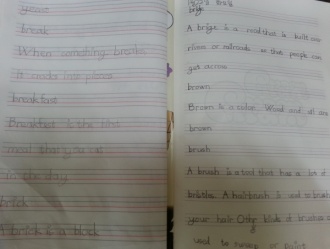 break
When something breaks
it cracks into pieces
breakfast
Breakfast is the first
meal
in the day
brick
A brick is a block
brige
A brige is a road that is built over
rivers or railroads so that people can
get across
brown
Brown is a color. Wood and
brown
brush
A brush is a tool that has a lot of
bristles. A hairbrush is used to brush
your hair. Other kinds of brushes
used to sweep or paint